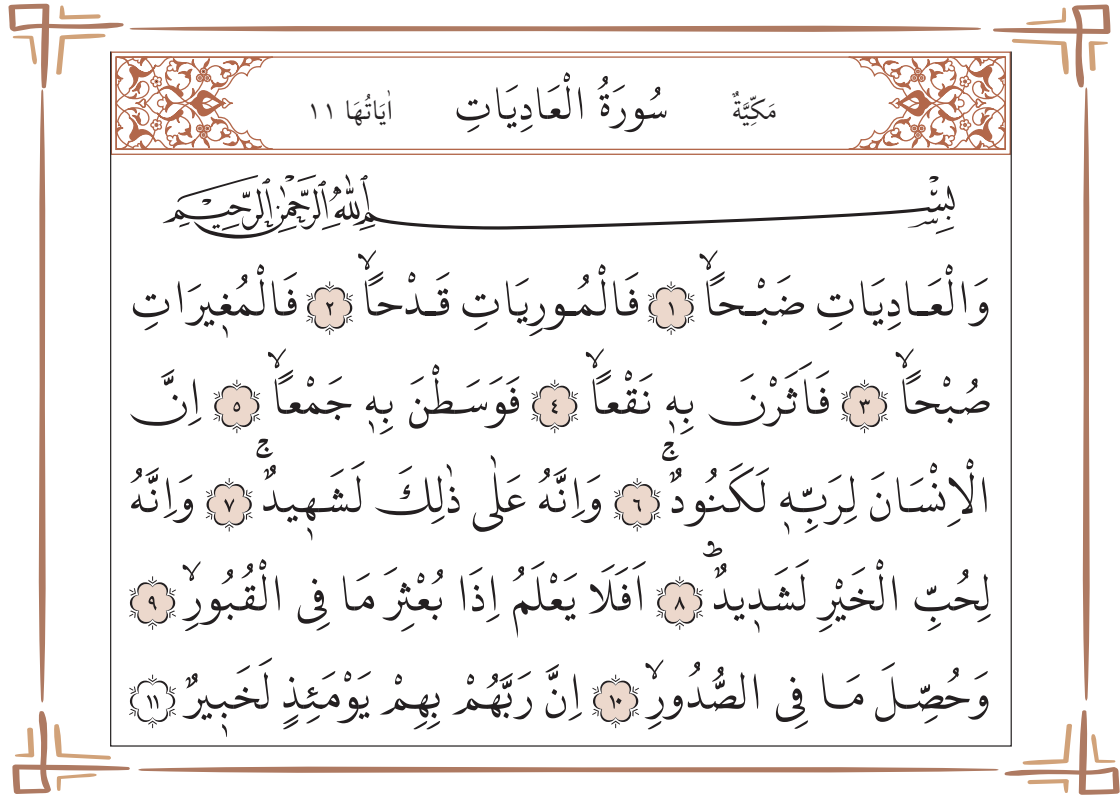 مَكِّيَّةٌ سُورَةُ الْعَادِيَاتِ اٰيَاتُهَا ١١
بِسْمِ اللّٰهِ الرَّحْمٰنِ الرَّحِيمِ
وَالْعَادِيَاتِ ضَبْحاًۙ ﴿١﴾ فَالْمُورِيَاتِ قَدْحاًۙ ﴿٢﴾ فَالْمُغ۪يرَاتِ
صُبْحاًۙ ﴿٣﴾ فَاَثَرْنَ بِه۪ نَقْعاًۙ ﴿٤﴾ فَوَسَطْنَ بِه۪ جَمْعاًۙ ﴿٥﴾ اِنَّ
الْاِنْسَانَ لِرَبِّه۪ لَكَنُودٌۚ ﴿٦﴾ وَاِنَّهُ عَلٰى ذٰلِكَ لَشَه۪يدٌۚ ﴿٧﴾ وَاِنَّهُ
لِحُبِّ الْخَيْرِ لَشَد۪يدٌۜ ﴿٨﴾ اَفَلَا يَعْلَمُ اِذَا بُعْثِرَ مَا فِى الْقُبُورِۙ ﴿٩﴾
وَحُصِّلَ مَا فِى الصُّدُورِۙ ﴿١٠﴾ اِنَّ رَبَّهُمْ بِهِمْ يَوْمَئِذٍ لَخَب۪يرٌ ﴿١١﴾